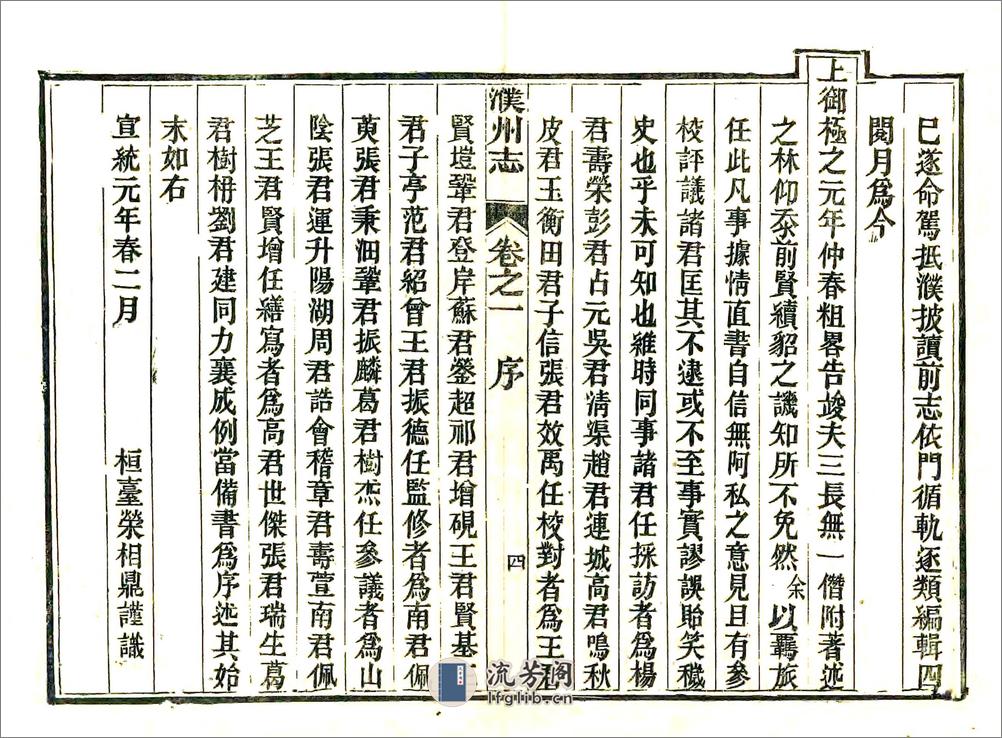 已遂命駕抵濮披讀前志依門循軌逐類編輯四
閱月爲今
上御極之元年仲春粗畧告竣夫三長無一僭附著述
之林仰忝前賢續貂之譏知所不免然余以羈旅
任此凡事據情直書自信無阿私之意見且有參
校評議諸君匡其不逮或不至事實謬誤貽笑穢
史也乎未可知也維時同事諸君任採訪者爲楊
君壽榮彭君占元吳君淸渠趙君連城高君鳴秋
皮君玉衡田君子信張君效禹任校對者爲王君
濮州志 卷之一 序 四
賢塏鞏君登岸蘇君蓥超祁君增硯王君賢基
君子亭范君紹曾王君振德任監修者爲南君佩
萸張君秉㳌鞏君振麟葛君樹烝任參議者爲山
陰張君運升陽湖周君誥會稽章君壽萱南君佩
芝王君賢增任繕寫者爲高君世傑張君瑞生葛
君樹枬劉君建同力襄成例當備書爲序述其始
末如右
宣統元年春二月 桓臺榮相鼎謹識
流芳閣
lfglib.cn